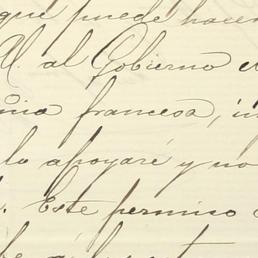 que puede hacer
U. al Gobierno e
ñia francesa, in
lo apoyaré y no
. Este permiso